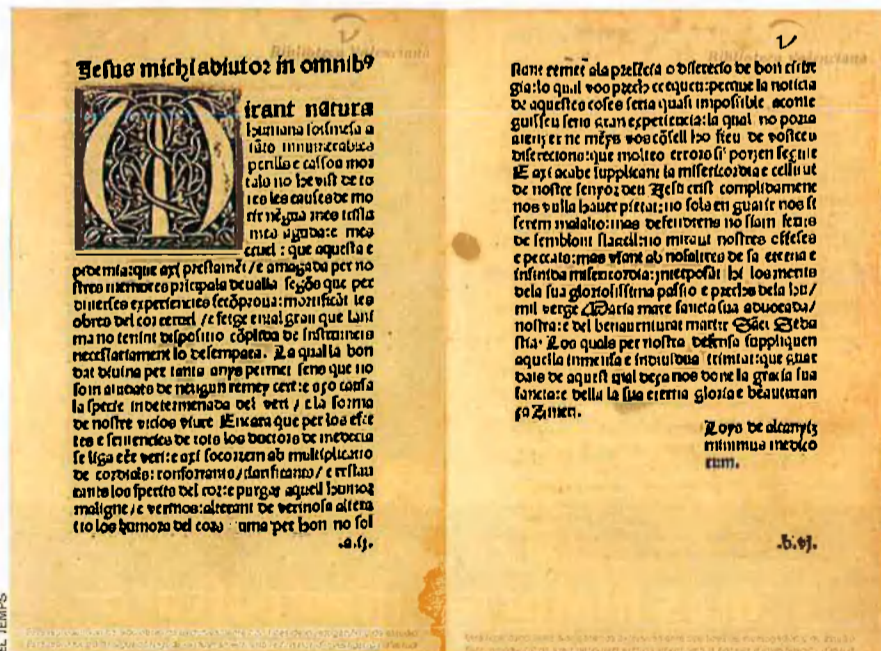 Jesus michi adiutor in omnibꝰ
Mirant natura
humana sotsmesa a
tãto innumerables
perills e cassos mor
tals no he vist de to
tes les causes de mo
rir nẽguna mes tista
mes aguda: e mes
cruel: que aquesta e
pidemia: que axi prestamẽt / e amagada per no
stres menbres prĩcipals devalla segõs que per
diverses experiencies
obres del cor cervell / e fetge en tal gran que lani
ma no tenint dispositio de instrumẽts
necessariament lo desempara. La qual la bon
dat divina per tants anys permet sens que no
som aiudats de nengun remey cert: e aço causa
la specie indeterminada del veri / e la forma
de nostre vicios viure Encara que per los efec
tes e sentencies de tots los doctors de medecĩa
se liga esser veri: e axi socorrem ab multiplicatio
de cordials: confortants / clarificants / e restau
rants los sperits del cor: e purgar aquell humor
maligne / e verinos: alterant de verinosa altera
tio los humors del cors per hon no sol
.a.ij.
Biblioteca Valenciana
stant remet ala presẽcia o discrecio de bon cirur
gia: lo qual vos prech cerqueu: perque la noticia
de aquestes coses seria quasi impossible aconse
guisseu sens gran experiencia: la qual no poria
ne mẽys vos cõsell ho fieu de vostres
discrecions: que moltes errors si porien seguir
E axi acabe supplicant la misericordia e
de nostre senyor deu Jesu crist complidament
nos vulla haver pietat: no sols en guarir nos si
serem malalts: mas defendrens no siam ferits
de semblant flagell: no mirant nostres offeses
e peccats: mas vsant ab nosaltres de sa eterna e
infinida misericordia: interposãt hi los merits
dela sua gloriosissima passio e prechs dela hu/
mil verge Maria mare sancta sua advocada /
nostra: e del benaventurat martir Sãct Seba
stia. Los quals per nostra defensa suppliquen
aquella inmensa e individua trinitat: que guar
dats de aquest mal deça nos done la gracia sua
sancta: e della la sua eterna gloria e beauturan
ça Amen.
Loys de alcanyiz
minimus medico
rum.
.b.vj.
Biblioteca Valenciana
EL TEMPS